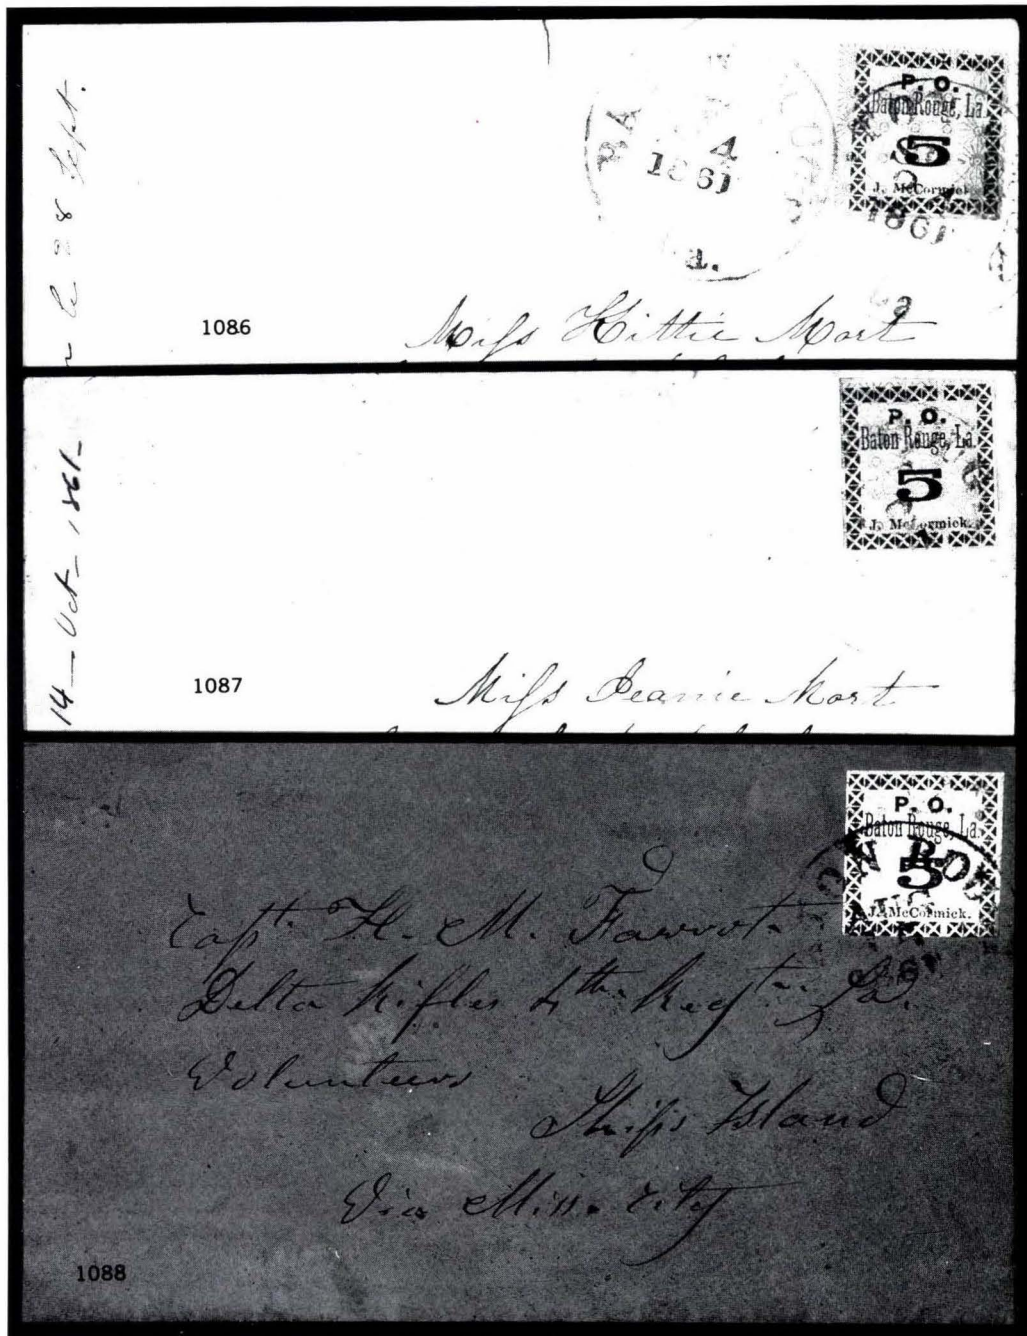 28 Sept.
4
1861
a.
P. O.
Baton Rouge, La.
5
J. McCormick.
1861
1086
Miss Kittie Mort
14 — Oct — 1861 —
P. O.
Baton Rouge, La.
5
J. McCormick.
1087
Miss Jeanie Mort
P. O.
Baton Rouge, La.
5
J. McCormick.
ON ROU
Capt. H. M. Favrot.
Delta Rifles 4th Regt. La.
Volunteers
Ships Island
Via Miss. City
1088